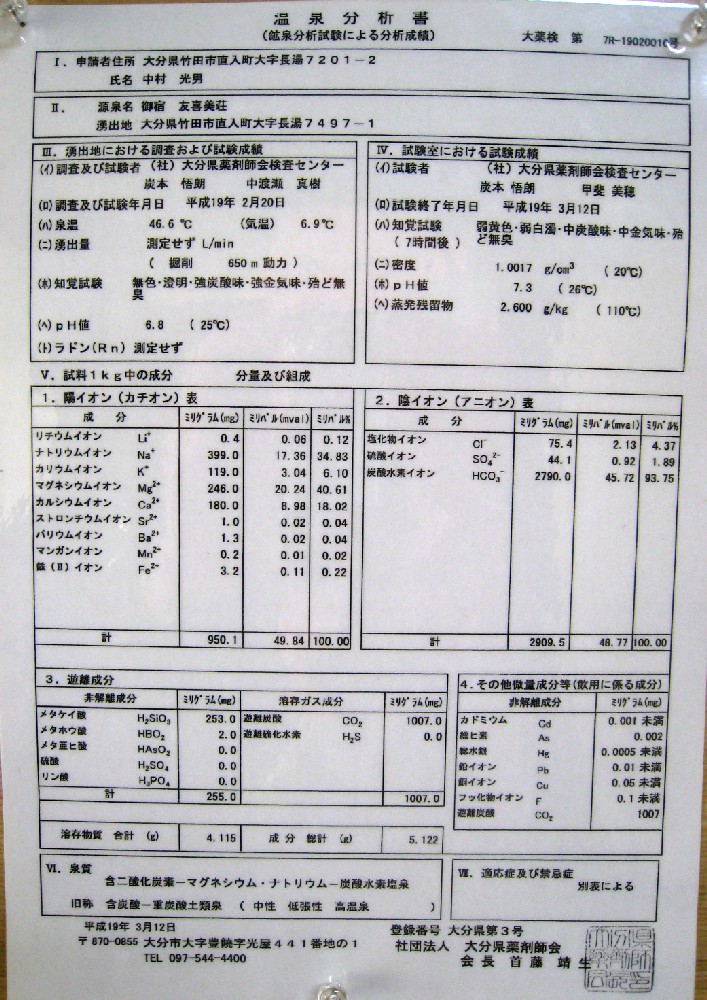 温泉分析書
(鉱泉分析試験による分析成績)
大薬検 第 7R-1902001
Ⅰ．申請者住所 大分県竹田市直入町大字長湯７２０１－２
氏名 中村 光男
Ⅱ．源泉名 御宿 友喜美荘
湧出地 大分県竹田市直入町大字長湯７４９７－１
Ⅲ．湧出地における調査および試験成績
(ｲ)調査及び試験者 (社) 大分県薬剤師会検査センター
炭本 悟朗 中渡瀬 真樹
(ﾛ)調査及び試験年月日 平成19年 2月20日
(ﾊ)泉温 46.6℃ (気温) 6.9℃
(ﾆ)湧出量 測定せず L/min
( 掘削 650m動力 )
(ﾎ)知覚試験 無色・澄明・強炭酸味・強金気味・殆ど無
臭
(ﾍ)pH値 6.8 (25℃)
(ﾄ)ラドン(Rn) 測定せず
Ⅳ．試験室における試験成績
(ｲ)試験者 (社) 大分県薬剤師会検査センター
炭本 悟朗 甲斐 美穂
(ﾛ)試験終了年月日 平成19年 3月12日
(ﾊ)知覚試験 弱黄色・弱白濁・中炭酸味・中金気味・殆
(7時間後) ど無臭
(ﾆ)密度 1.0017 g/cm³ (20℃)
(ﾎ)pH値 7.3 (26℃)
(ﾍ)蒸発残留物 2.600 g/kg (110℃)
Ⅴ．試料１kg中の成分 分量及び組成
1．陽イオン(カチオン)表
成分 ﾐﾘｸﾞﾗﾑ(mg) ﾐﾘﾊﾞﾙ(mval) ﾐﾘﾊﾞﾙ%
リチウムイオン Li⁺ 0.4 0.06 0.12
ナトリウムイオン Na⁺ 399.0 17.36 34.83
カリウムイオン K⁺ 119.0 3.04 6.10
マグネシウムイオン Mg²⁺ 246.0 20.24 40.61
カルシウムイオン Ca²⁺ 180.0 8.98 18.02
ストロンチウムイオン Sr²⁺ 1.0 0.02 0.04
バリウムイオン Ba²⁺ 1.3 0.02 0.04
マンガンイオン Mn²⁺ 0.2 0.01 0.02
鉄(Ⅱ)イオン Fe²⁺ 3.2 0.11 0.22
計 950.1 49.84 100.00
2．陰イオン(アニオン)表
成分 ﾐﾘｸﾞﾗﾑ(mg) ﾐﾘﾊﾞﾙ(mval) ﾐﾘﾊﾞﾙ%
塩化物イオン Cl⁻ 75.4 2.13 4.37
硫酸イオン SO₄²⁻ 44.1 0.92 1.89
炭酸水素イオン HCO₃⁻ 2790.0 45.72 93.75
計 2909.5 48.77 100.00
3．遊離成分
非解離成分 ﾐﾘｸﾞﾗﾑ(mg) 溶存ガス成分 ﾐﾘｸﾞﾗﾑ(mg)
メタケイ酸 H₂SiO₃ 253.0 遊離炭酸 CO₂ 1007.0
メタホウ酸 HBO₂ 2.0 遊離硫化水素 H₂S 0.0
メタ亜ヒ酸 HAsO₂ 0.0
硫酸 H₂SO₄ 0.0
リン酸 H₃PO₄ 0.0
計 255.0 1007.0
4．その他微量成分等(飲用に係る成分)
非解離成分 ﾐﾘｸﾞﾗﾑ(mg)
カドミウム Cd 0.001 未満
総ヒ素 As 0.002
総水銀 Hg 0.0005 未満
鉛イオン Pb 0.01 未満
銅イオン Cu 0.05 未満
フッ化物イオン F 0.1 未満
遊離炭酸 CO₂ 1007
溶存物質 合計 (g) 4.115 成分 総計 (g) 5.122
Ⅵ．泉質
含二酸化炭素－マグネシウム・ナトリウム－炭酸水素塩泉
旧称 含炭酸－重炭酸土類泉 ( 中性 低張性 高温泉 )
Ⅶ．適応症及び禁忌症
別表による
平成19年 3月12日
〒870-0855 大分市大字豊饒字光屋４４１番地の１
TEL 097-544-4400
登録番号 大分県第３号
社団法人 大分県薬剤師会
会長 首藤 靖生